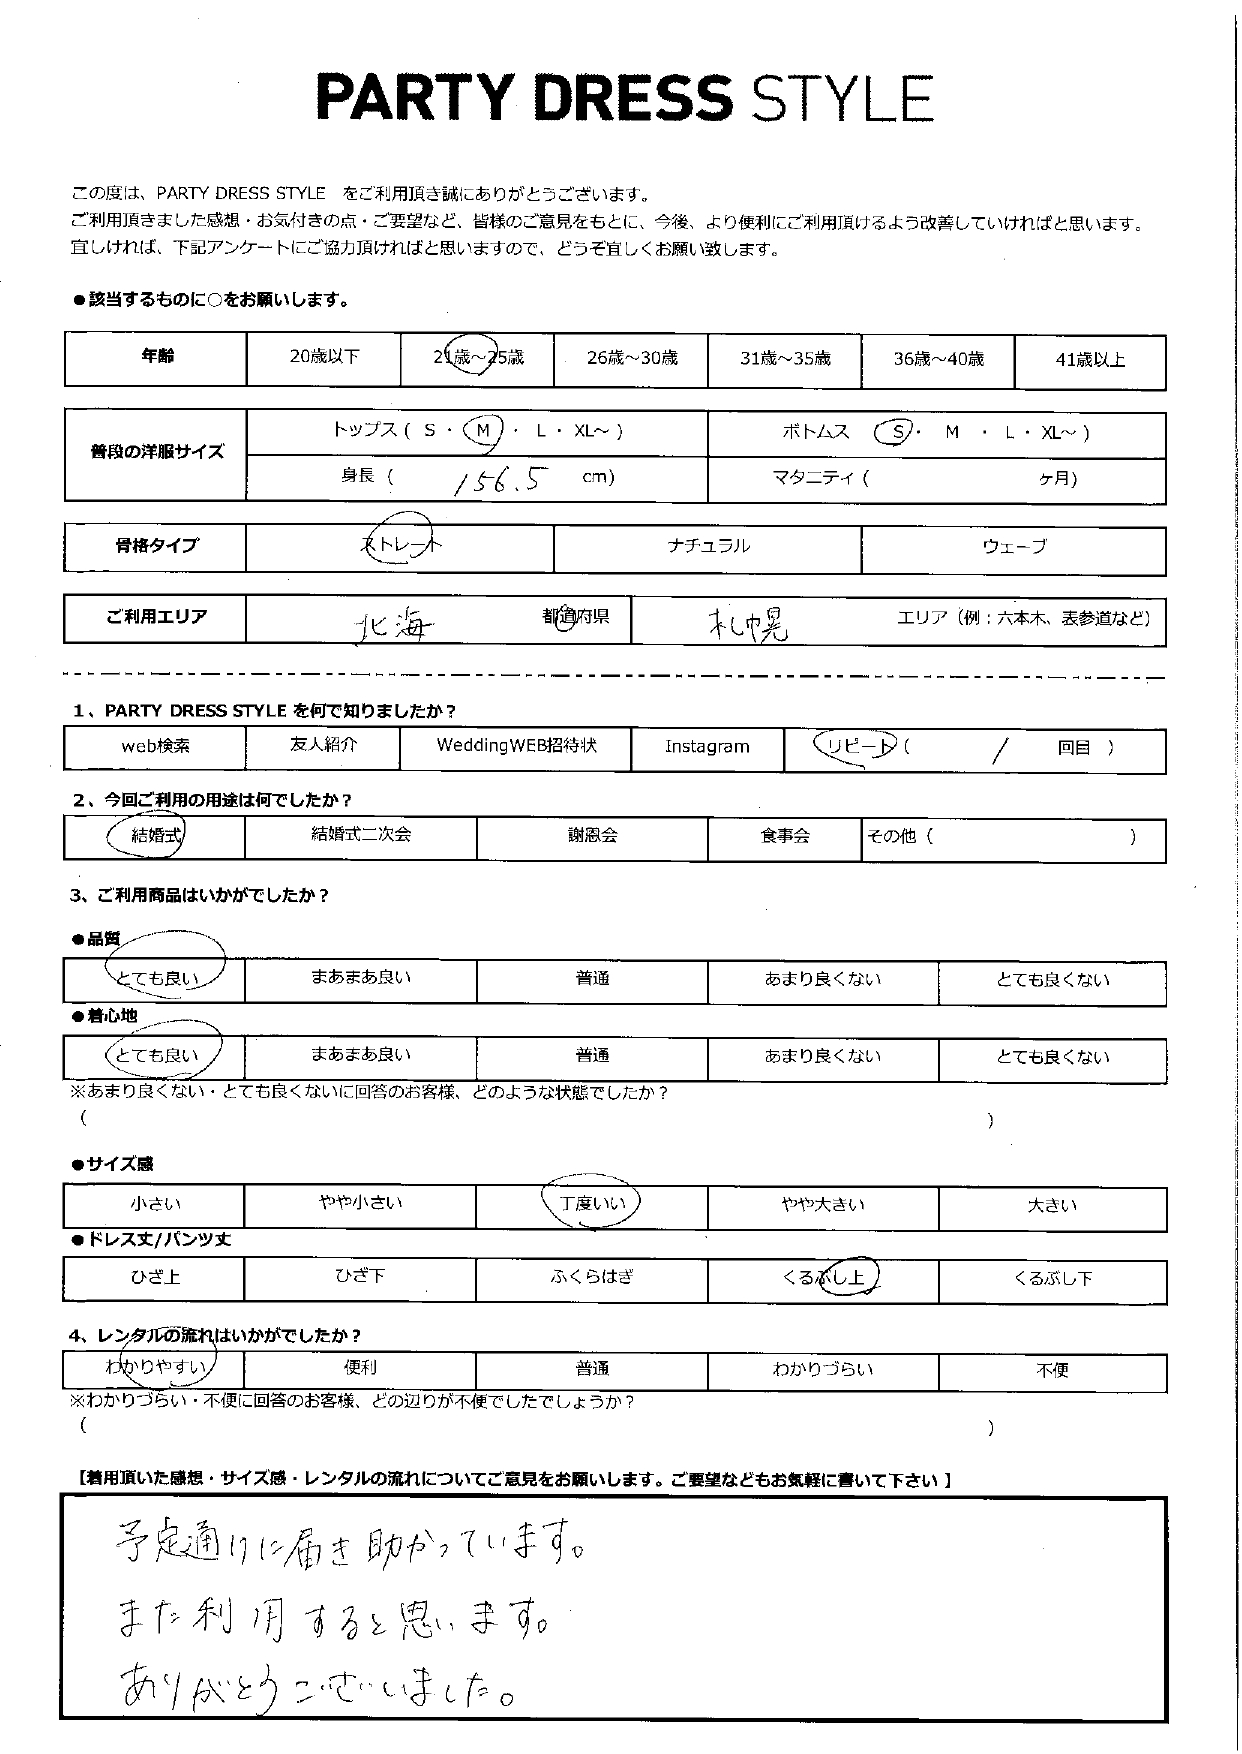 PARTY DRESS STYLE
この度は、PARTY DRESS STYLE をご利用頂き誠にありがとうございます。
ご利用頂きました感想・お気付きの点・ご要望など、皆様のご意見をもとに、今後、より便利にご利用頂けるよう改善していければと思います。
宜しければ、下記アンケートにご協力頂ければと思いますので、どうぞ宜しくお願い致します。
●該当するものに○をお願いします。
年齢 20歳以下 21歳～25歳 26歳～30歳 31歳～35歳 36歳～40歳 41歳以上
普段の洋服サイズ
トップス ( S ・ M ・ L ・ XL～ ) ボトムス ( S ・ M ・ L ・ XL～ )
身長 ( 156.5 cm) マタニティ ( ヶ月)
骨格タイプ ストレート ナチュラル ウェーブ
ご利用エリア 北海 都道府県 札幌 エリア（例：六本木、表参道など）
1、PARTY DRESS STYLE を何で知りましたか？
web検索 友人紹介 WeddingWEB招待状 Instagram リピート ( / 回目 )
2、今回ご利用の用途は何でしたか？
結婚式 結婚式二次会 謝恩会 食事会 その他 ( )
3、ご利用商品はいかがでしたか？
●品質
とても良い まあまあ良い 普通 あまり良くない とても良くない
●着心地
とても良い まあまあ良い 普通 あまり良くない とても良くない
※あまり良くない・とても良くないに回答のお客様、どのような状態でしたか？
( )
●サイズ感
小さい やや小さい 丁度いい やや大きい 大きい
●ドレス丈/パンツ丈
ひざ上 ひざ下 ふくらはぎ くるぶし上 くるぶし下
4、レンタルの流れはいかがでしたか？
わかりやすい 便利 普通 わかりづらい 不便
※わかりづらい・不便に回答のお客様、どの辺りが不便でしたでしょうか？
( )
【着用頂いた感想・サイズ感・レンタルの流れについてご意見をお願いします。ご要望などもお気軽に書いて下さい 】
予定通りに届き助かっています。
また利用すると思います。
ありがとうございました。